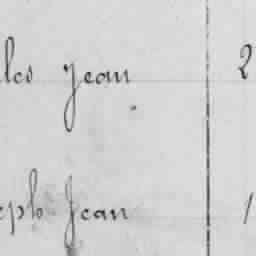 les Jean 2
eph Jean 1